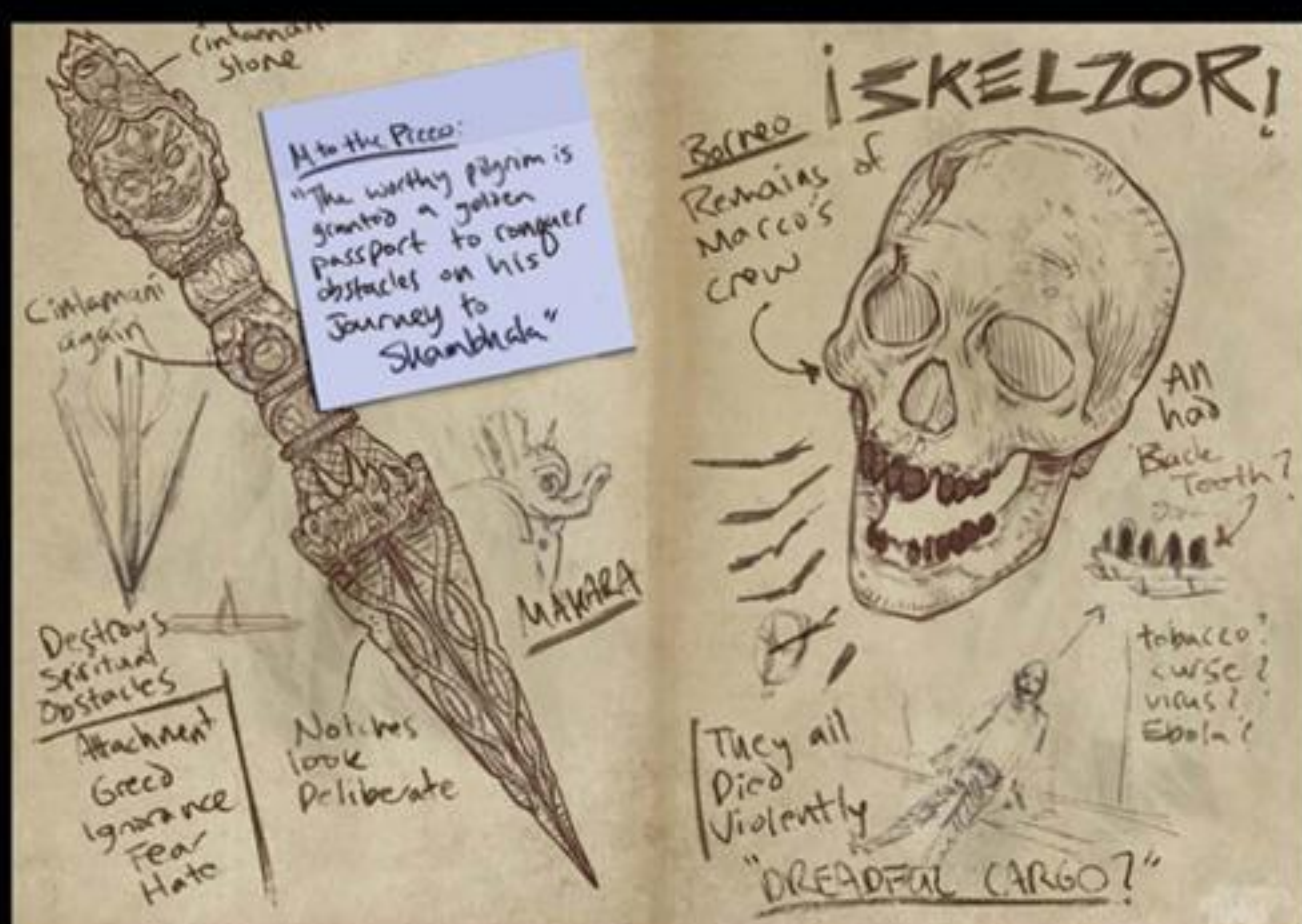 Cintamani
stone
M to the Picco:
"The worthy pilgrim is
granted a golden
passport to conquer
obstacles on his
Journey to
Shambhala"
Cintamani
again
MAKARA
Destroys
Spiritual
Obstacles
Attachment
Greed
Ignorance
Fear
Hate
Notches
look
Deliberate
¡SKELZOR!
Borneo
Remains of
Marco's
crew
All
had
Black
Teeth?
tobacco?
curse?
virus?
Ebola?
They all
Died
Violently
"DREADFUL CARGO?"